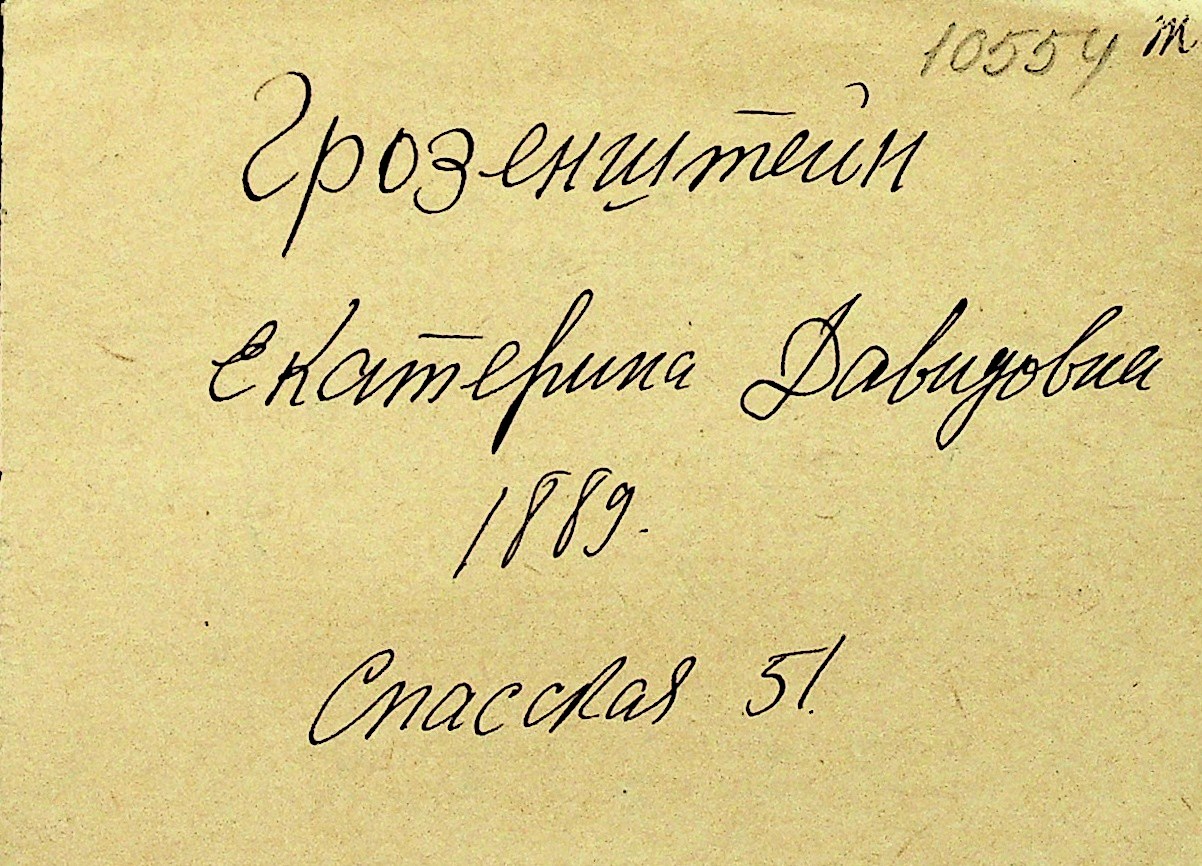 10554 т
Грозенштейн
Екатерина Давидовна
1889.
Спасская 51.